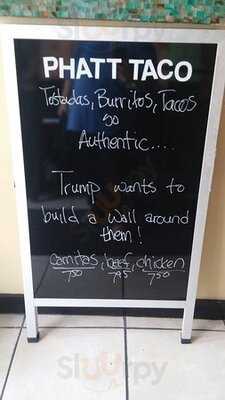 PHATT TACO
Tostadas, Burritos, Tacos
so
Authentic....
Trump wants to
build a wall around
them!
carnitas, beef, chicken
7.50 7.95 7.50
Sluurpy
Sluurpy